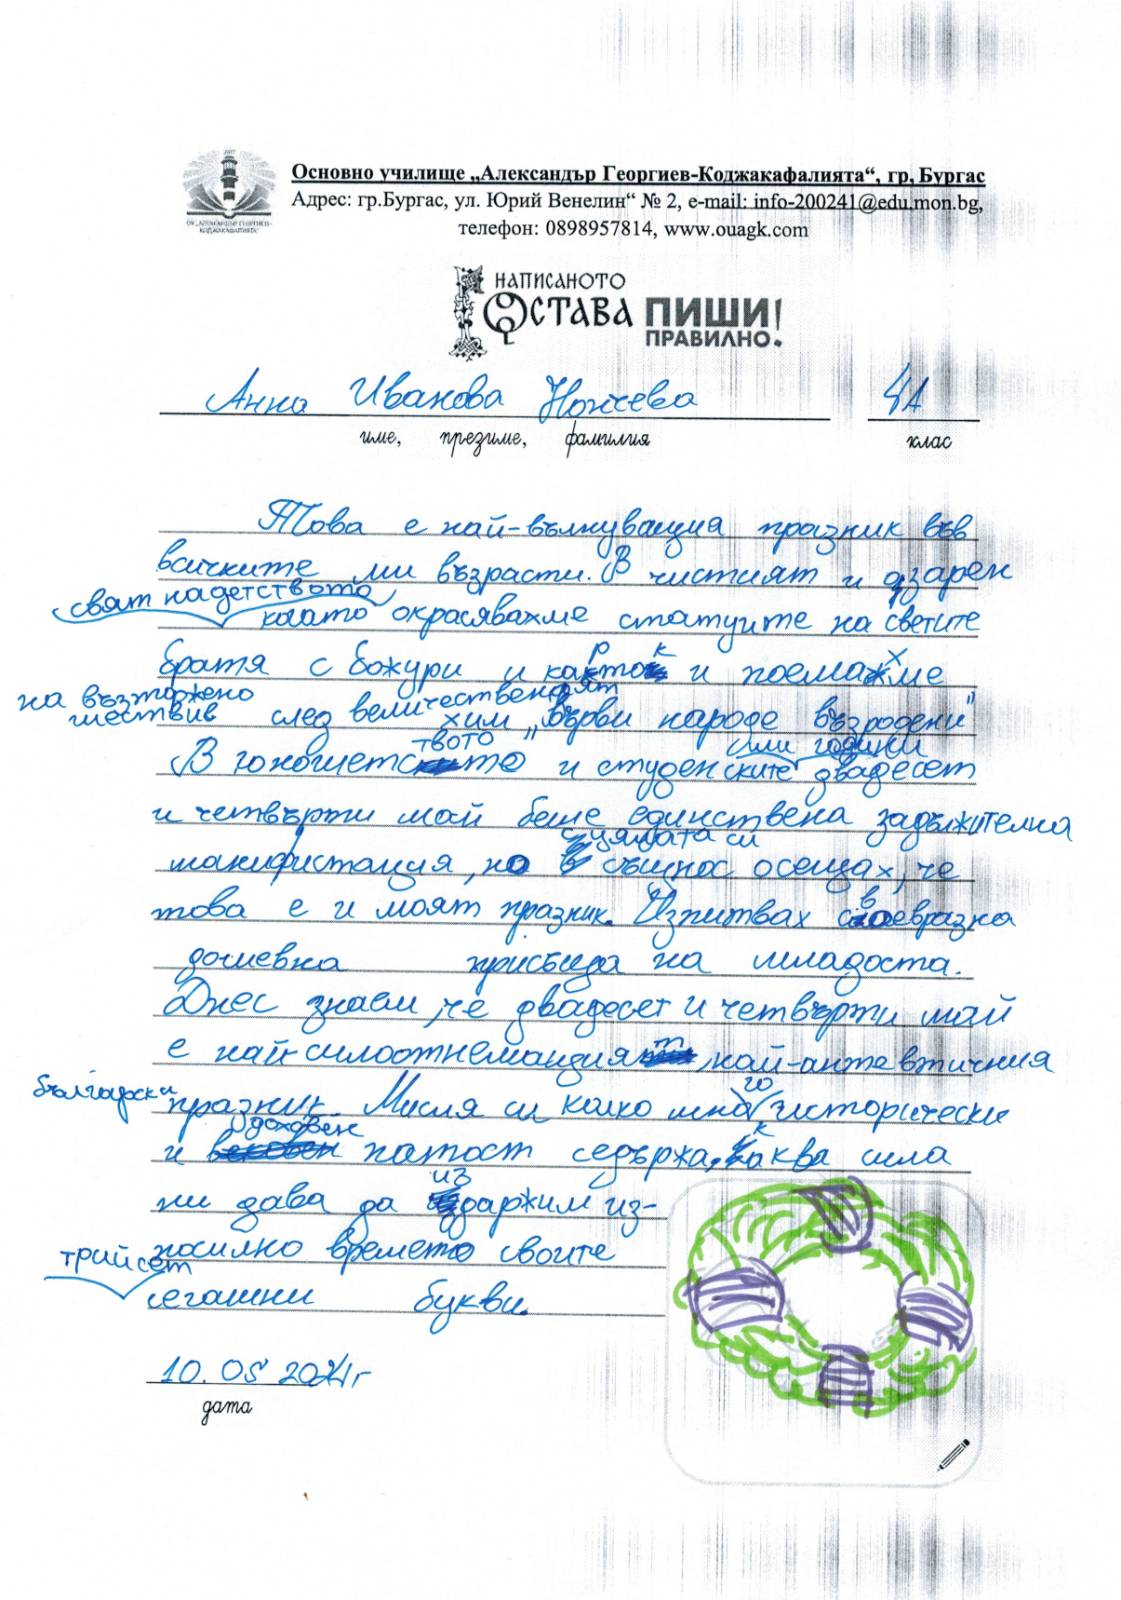 Основно училище „Александър Георгиев-Коджакафалията“, гр, Бургас
Адрес: гр.Бургас, ул. Юрий Венелин“ № 2, e-mail: info-200241@edu.mon.bg,
телефон: 0898957814, www.ouagk.com
ОУ „АЛЕКСАНДЪР ГЕОРГИЕВ-
КОДЖАКАФАЛИЯТА“
НАПИСАНОТО
ОСТАВА ПИШИ
ПРАВИЛНО!
Анна Иванова Ножчева 4А
име, презиме, фамилия клас
Това е най-вълнуващия празник във
всичките ми възрасти. В чистият и озарен
свят на детството
когато окрасявахме статуите на светите
братя с божури и как то и поемахме
на възторжено
шествие след величественият
хим „върви народе възродени“
В юношетството и студенските или години двадесет
и четвърти май беше единствена задължителна
манифистация, но с цялата си същнос осещах, че
това е и моят празник. Изпитвах своевразна
душевна присъида на младоста.
Днес знаем, че двадесет и четвърти май
е най-силоотнемандия най-антевтичния
български
празник. Мисля си колко много исторически
и доховен патост седържа, каква сила
ни дава да издаржим из-
носилно времето своите
трийсет
сегашни букви.
10.05 2024г
дата